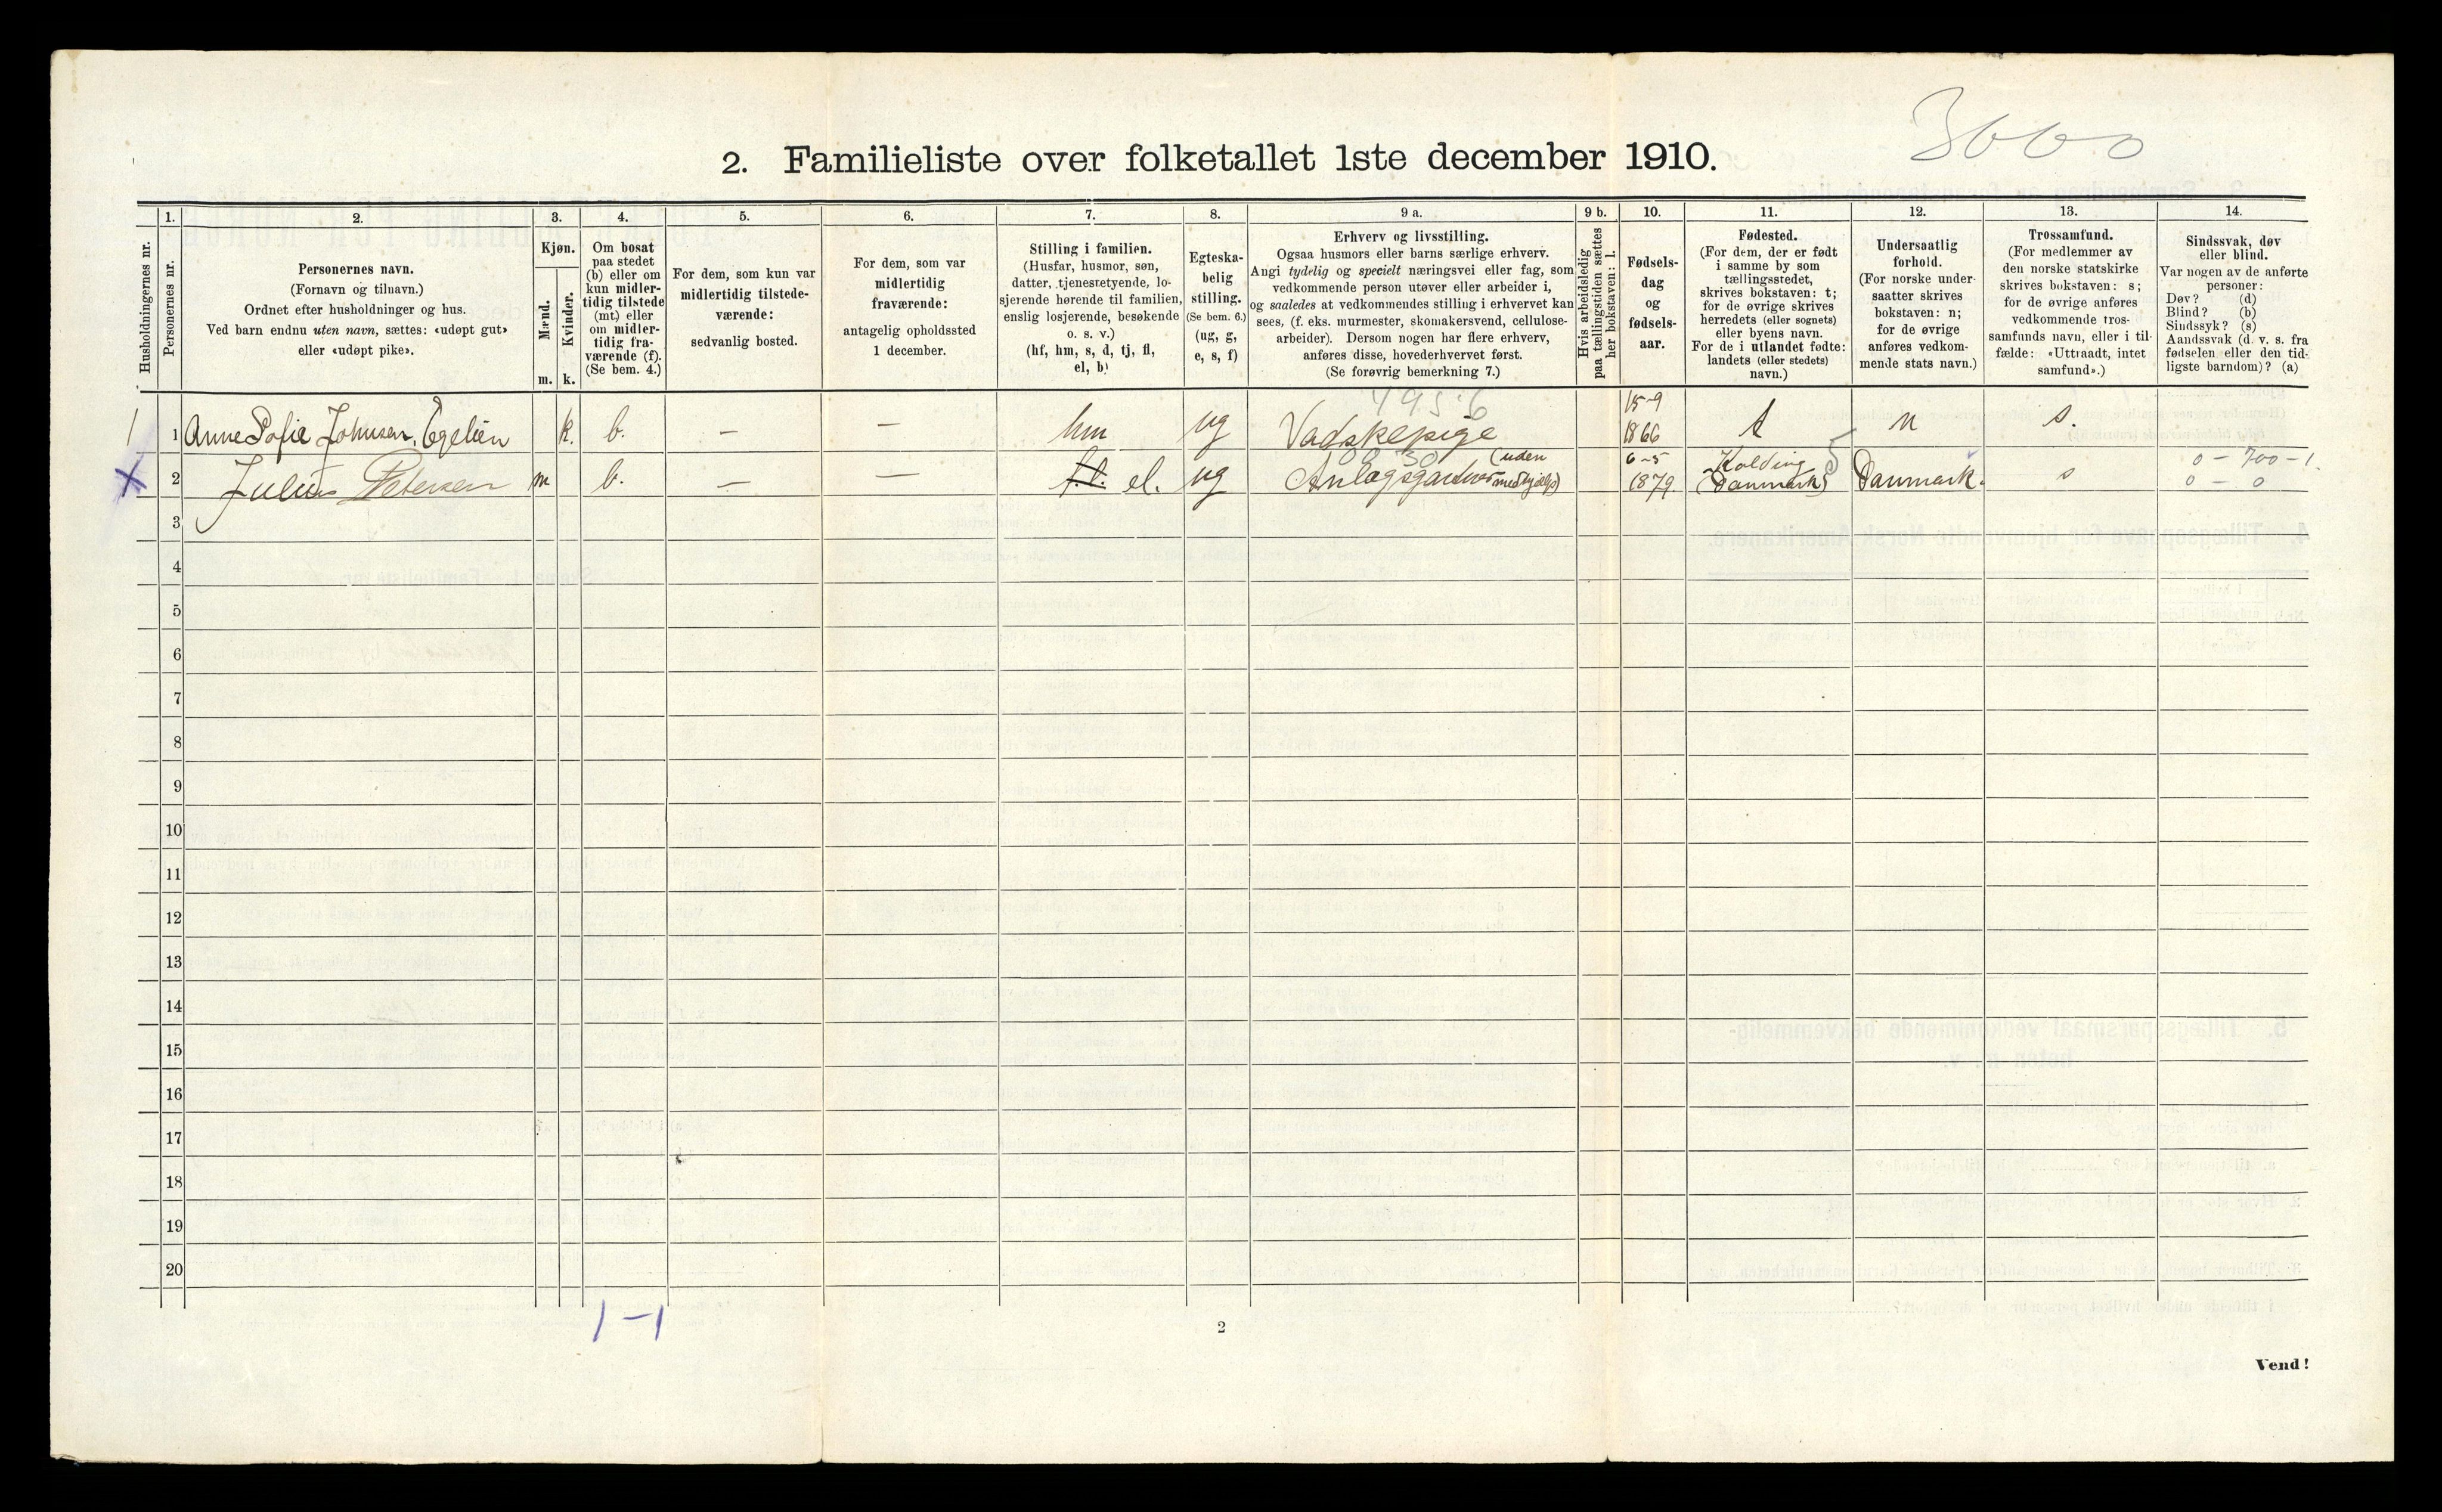 3660
2. Familieliste over folketallet 1ste december 1910.
Husholdningernes nr.
1.
Personernes nr.
2.
Personernes navn.
(Fornavn og tilnavn.)
Ordnet efter husholdninger og hus.
Ved barn endnu uten navn, sættes: «udøpt gut»
eller «udøpt pike».
3.
Kjøn.
Mænd.
m.
Kvinder.
k.
4.
Om bosat
paa stedet
(b) eller om
kun midler-
tidig tilstede
(mt) eller
om midler-
tidig fra-
værende (f).
(Se bem. 4.)
5.
For dem, som kun var
midlertidig tilstede-
værende:
sedvanlig bosted.
6.
For dem, som var
midlertidig
fraværende:
antagelig opholdssted
1 december.
7.
Stilling i familien.
(Husfar, husmor, søn,
datter, tjenestetyende, lo-
sjerende hørende til familien,
enslig losjerende, besøkende
o. s. v.)
(hf, hm, s, d, tj, fl,
el, b)
8.
Egteska-
belig
stilling.
(Se bem. 6.)
(ug, g,
e, s, f)
9 a.
Erhverv og livsstilling.
Ogsaa husmors eller barns særlige erhverv.
Angi tydelig og specielt næringsvei eller fag, som
vedkommende person utøver eller arbeider i,
og saaledes at vedkommendes stilling i erhvervet kan
sees, (f. eks. murmester, skomakersvend, cellulose-
arbeider). Dersom nogen har flere erhverv,
anføres disse, hovederhvervet først.
(Se forøvrig bemerkning 7.)
9 b.
Hvis arbeidsledig
paa tællingstiden sættes
her bokstaven: l.
10.
Fødsels-
dag
og
fødsels-
aar.
11.
Fødested.
(For dem, der er født
i samme by som
tællingsstedet,
skrives bokstaven: t;
for de øvrige skrives
herredets (eller sognets)
eller byens navn.
For de i utlandet fødte:
landets (eller stedets)
navn.)
12.
Undersaatlig
forhold.
(For norske under-
saatter skrives
bokstaven: n;
for de øvrige
anføres vedkom-
mende stats navn.)
13.
Trossamfund.
(For medlemmer av
den norske statskirke
skrives bokstaven: s;
for de øvrige anføres
vedkommende tros-
samfunds navn, eller i til-
fælde: «Uttraadt, intet
samfund».)
14.
Sindssvak, døv
eller blind.
Var nogen av de anførte
personer:
Døv? (d)
Blind? (b)
Sindssyk? (s)
Aandssvak (d. v. s. fra
fødselen eller den tid-
ligste barndom)? (a)
495.6
1 1 Anne Sofie Johnsen, Egelien k. b. — — hm ug Vadskepige 15-9 1866 t n s.
00 30
X 2 Julius Petersen m b. — — fl. el. ug Anlægsgartner (uden medhjælp) 6-5 1879. Kolding (Danmark) 5 Danmark. s 0 - 700 - 1.
0 - 0
3
4
5
6
7
8
9
10
11
12
13
14
15
16
17
18
19
20
1-1
2
Vend!